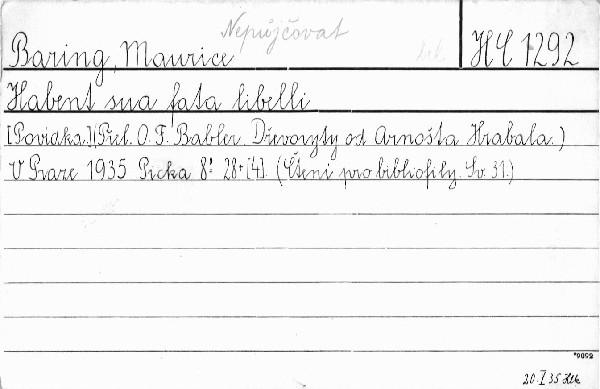 Nepůjčovat
Baring, Maurice HČ 1292
Habent sua fata libelli
[Povídka.](Přel. O. F. Babler. Dřevoryty od Arnošta Hrabala.)
V Praze 1935 Picka 8° 28+[4]. (Čtení pro bibliofily. Sv. 31.)
20 I 35